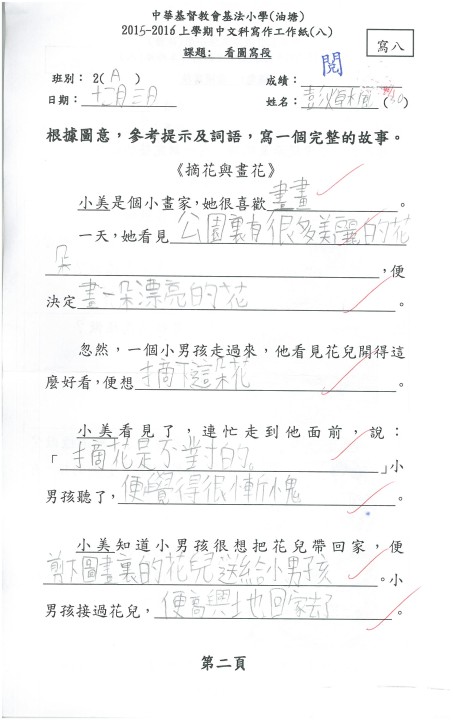 中華基督教會基法小學(油塘)
2015-2016上學期中文科寫作工作紙(八)
寫八
課題：看圖寫段
閱
班別：2(A) 成績：
日期：十二月三日 姓名：
根據圖意，參考提示及詞語，寫一個完整的故事。
《摘花與畫花》
小美是個小畫家，她很喜歡畫畫。
一天，她看見公園裏有很多美麗的花
朵，便
決定畫一朵漂亮的花。
忽然，一個小男孩走過來，他看見花兒開得這
麼好看，便想摘下這朵花。
小美看見了，連忙走到他面前，說：
「摘花是不對的。」小
男孩聽了，便覺得很慚愧。
小美知道小男孩很想把花兒帶回家，便
剪下圖畫裏的花兒送給小男孩。小
男孩接過花兒，便高興地回家去了。
第二頁